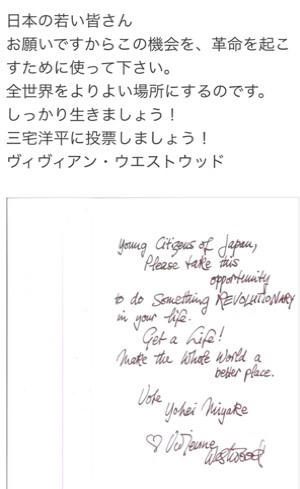 日本の若い皆さん
お願いですからこの機会を、革命を起こ
すために使って下さい。
全世界をよりよい場所にするのです。
しっかり生きましょう！
三宅洋平に投票しましょう！
ヴィヴィアン・ウエストウッド
Young Citizens of Japan,
Please take this
opportunity
to do something REVOLUTIONARY
in your life.
Get a Life!
Make the Whole World a
better place.
Vote
Yohei Miyake
♡ Vivienne
Westwood